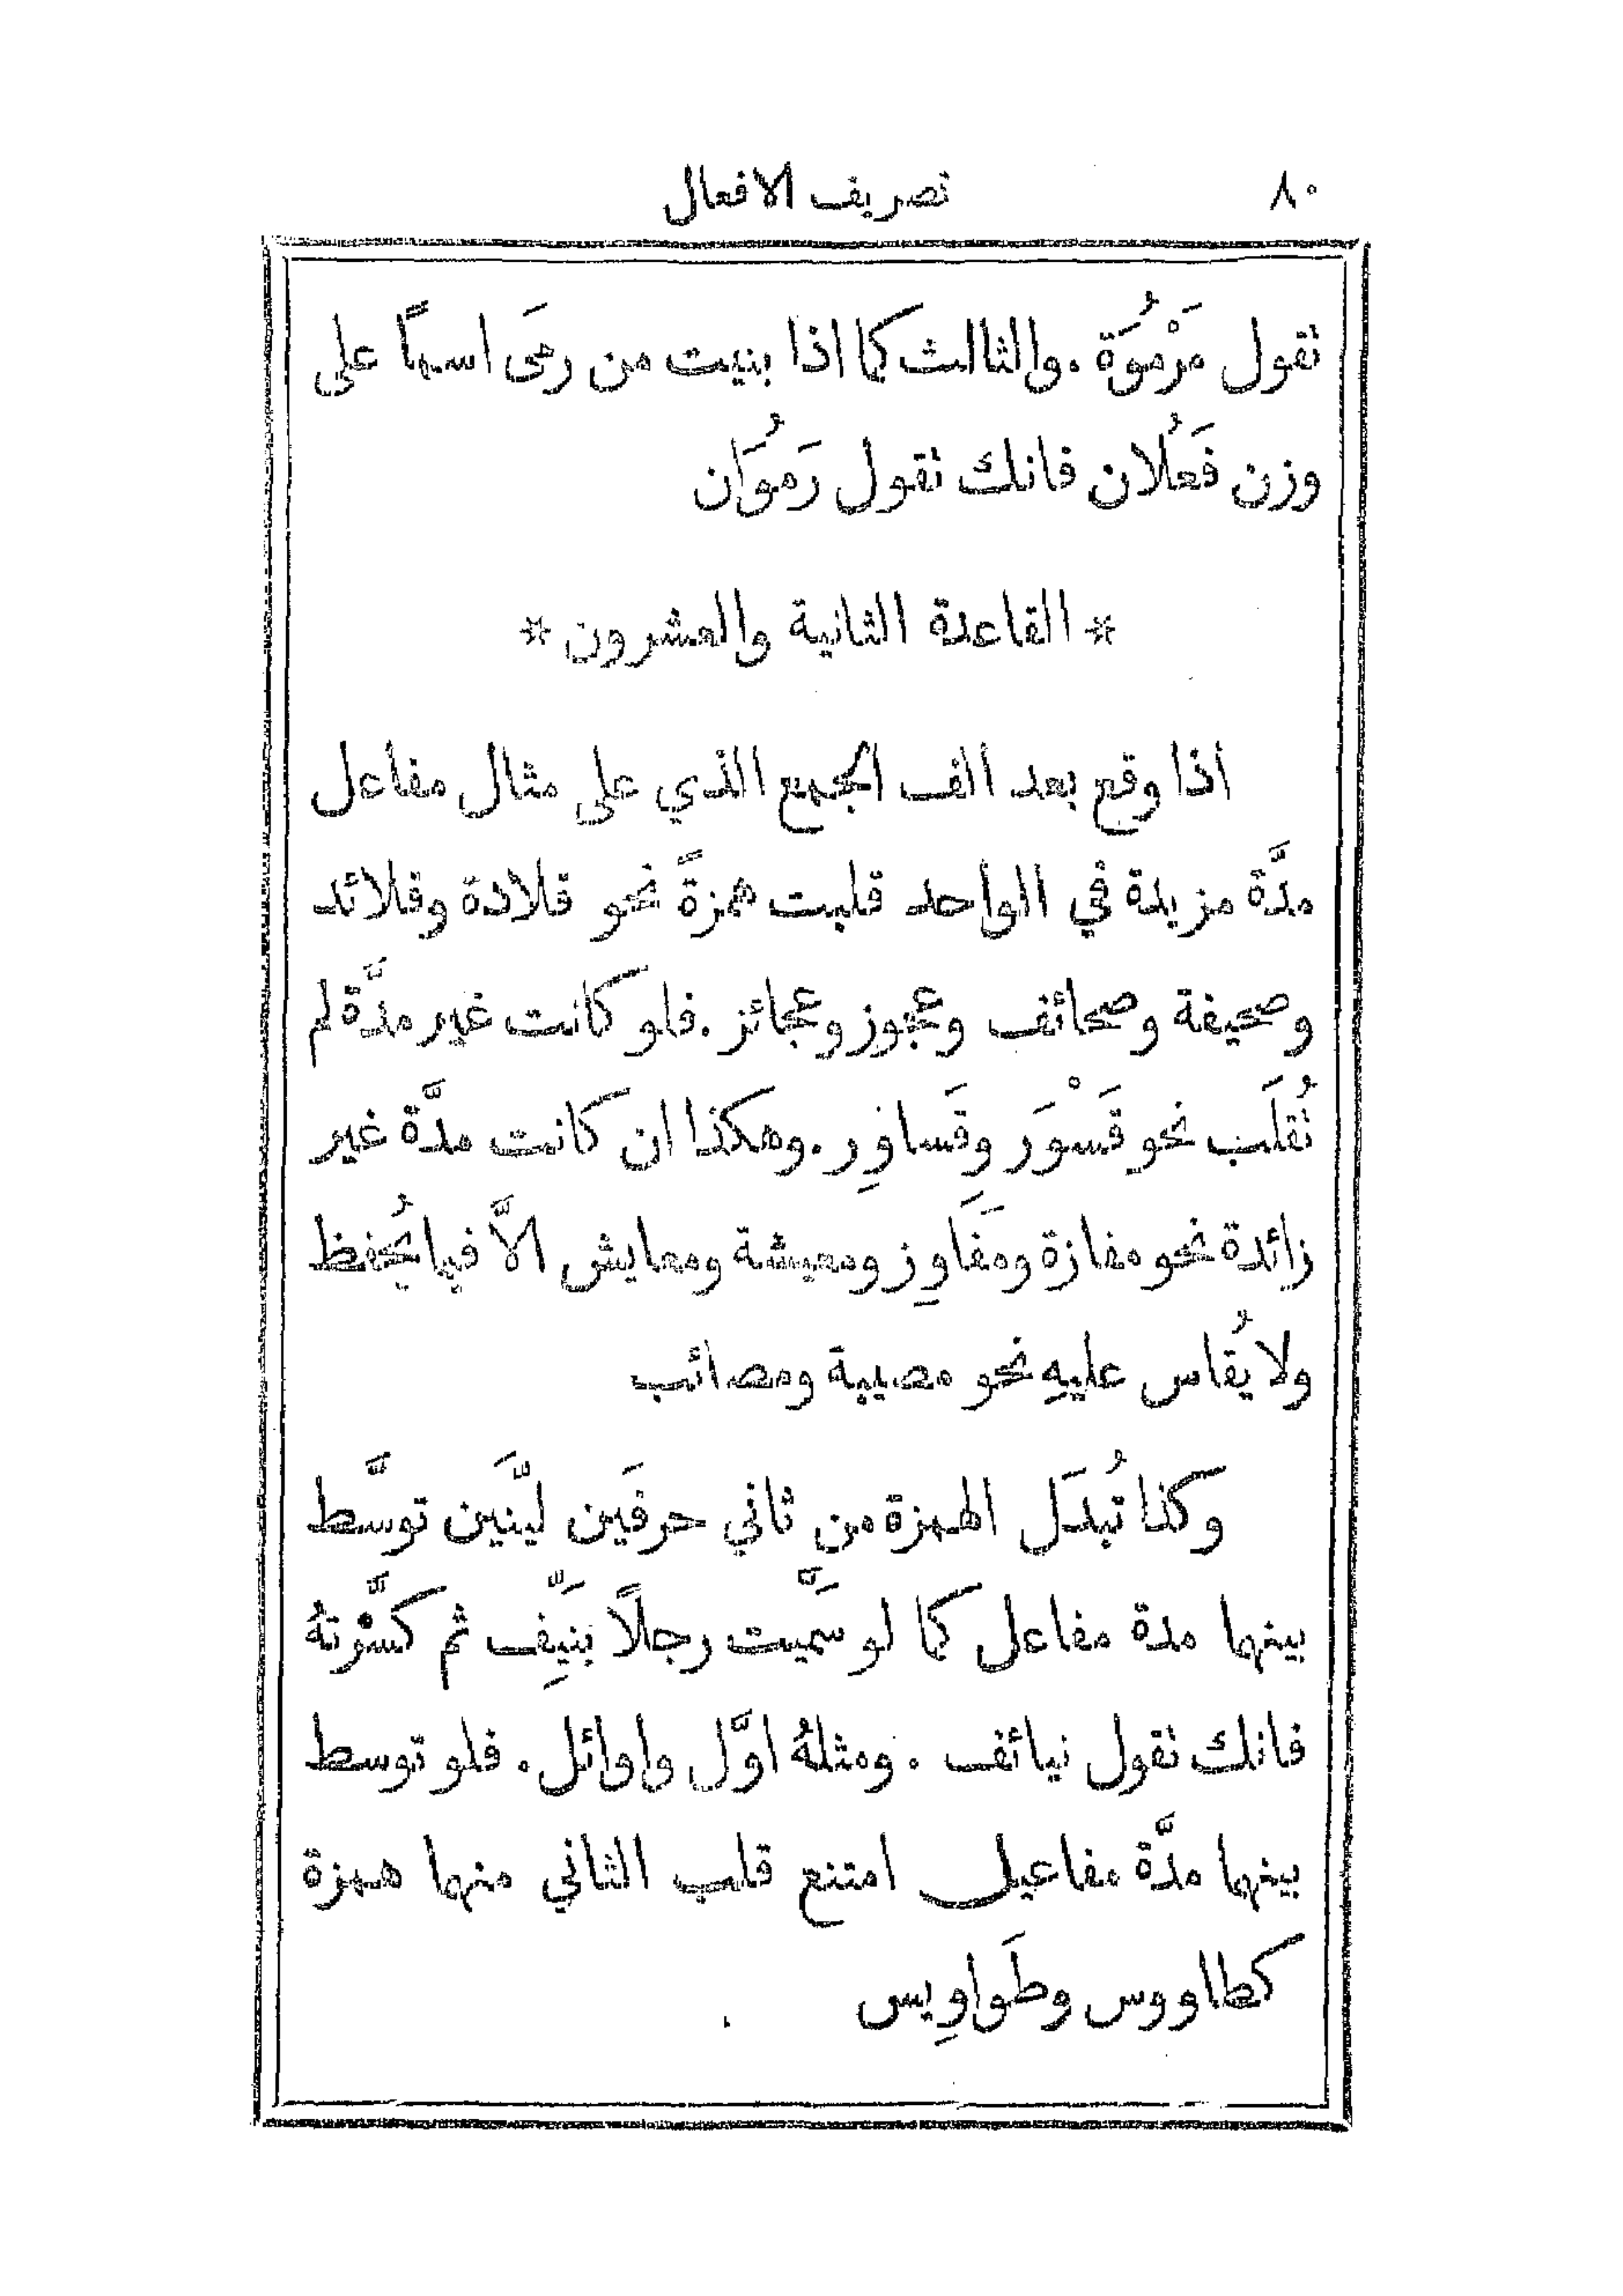 ٨٠ تصريف الافعال
تقول مَرْمُوَة . والثالث كما اذا بنيت من رمَى اسمًا على
وزن فَعُلان فانك تقول رَمُوَان
* القاعدة الثانية والعشرون *
اذا وقع بعد الف الجمع الذي على مثال مفاعل
مدَّة مزيدة في الواحد قلبت همزةً نحو قلادة وقلائد
وصحيفة وصحائف وعجوز وعجائز . فلو كانت غير مدَّة لم
تُقلَب نحو قَسْوَر وقَساوِر . وهكذا ان كانت مدَّة غير
زائدة نحو مفازة ومَفَاوِز ومعيشة ومعايش الاَّ فيما يُحفظ
ولا يُقاس عليهِ نحو مصيبة ومصائب
وكذا تُبدَل الهمزة من ثاني حرفَين ليّنَين توسَّط
بينهما مدة مفاعل كما لو سمَّيت رجلًا بنَيِّف ثم كسَّرْتهُ
فانك تقول نيائف . ومثلهُ اوَّل واوائل . فلو توسط
بينهما مدَّة مفاعيل امتنع قلب الثاني منهما همزة
كطاووس وطَواوِيس